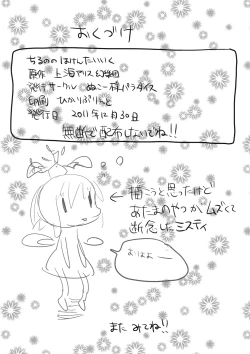 おくづけ
ちるののほけんたいいく
原作 上海アリス幻樂団
発行サークル ぬこー様パラダイス
印刷 ひかりぷりんと
発行日 2011年12月30日
無断で配布しないでね!!
← 描こうと思ったけど
あたまのやつが ムズくて
断念したミスティ
おはよー
また みてね!!